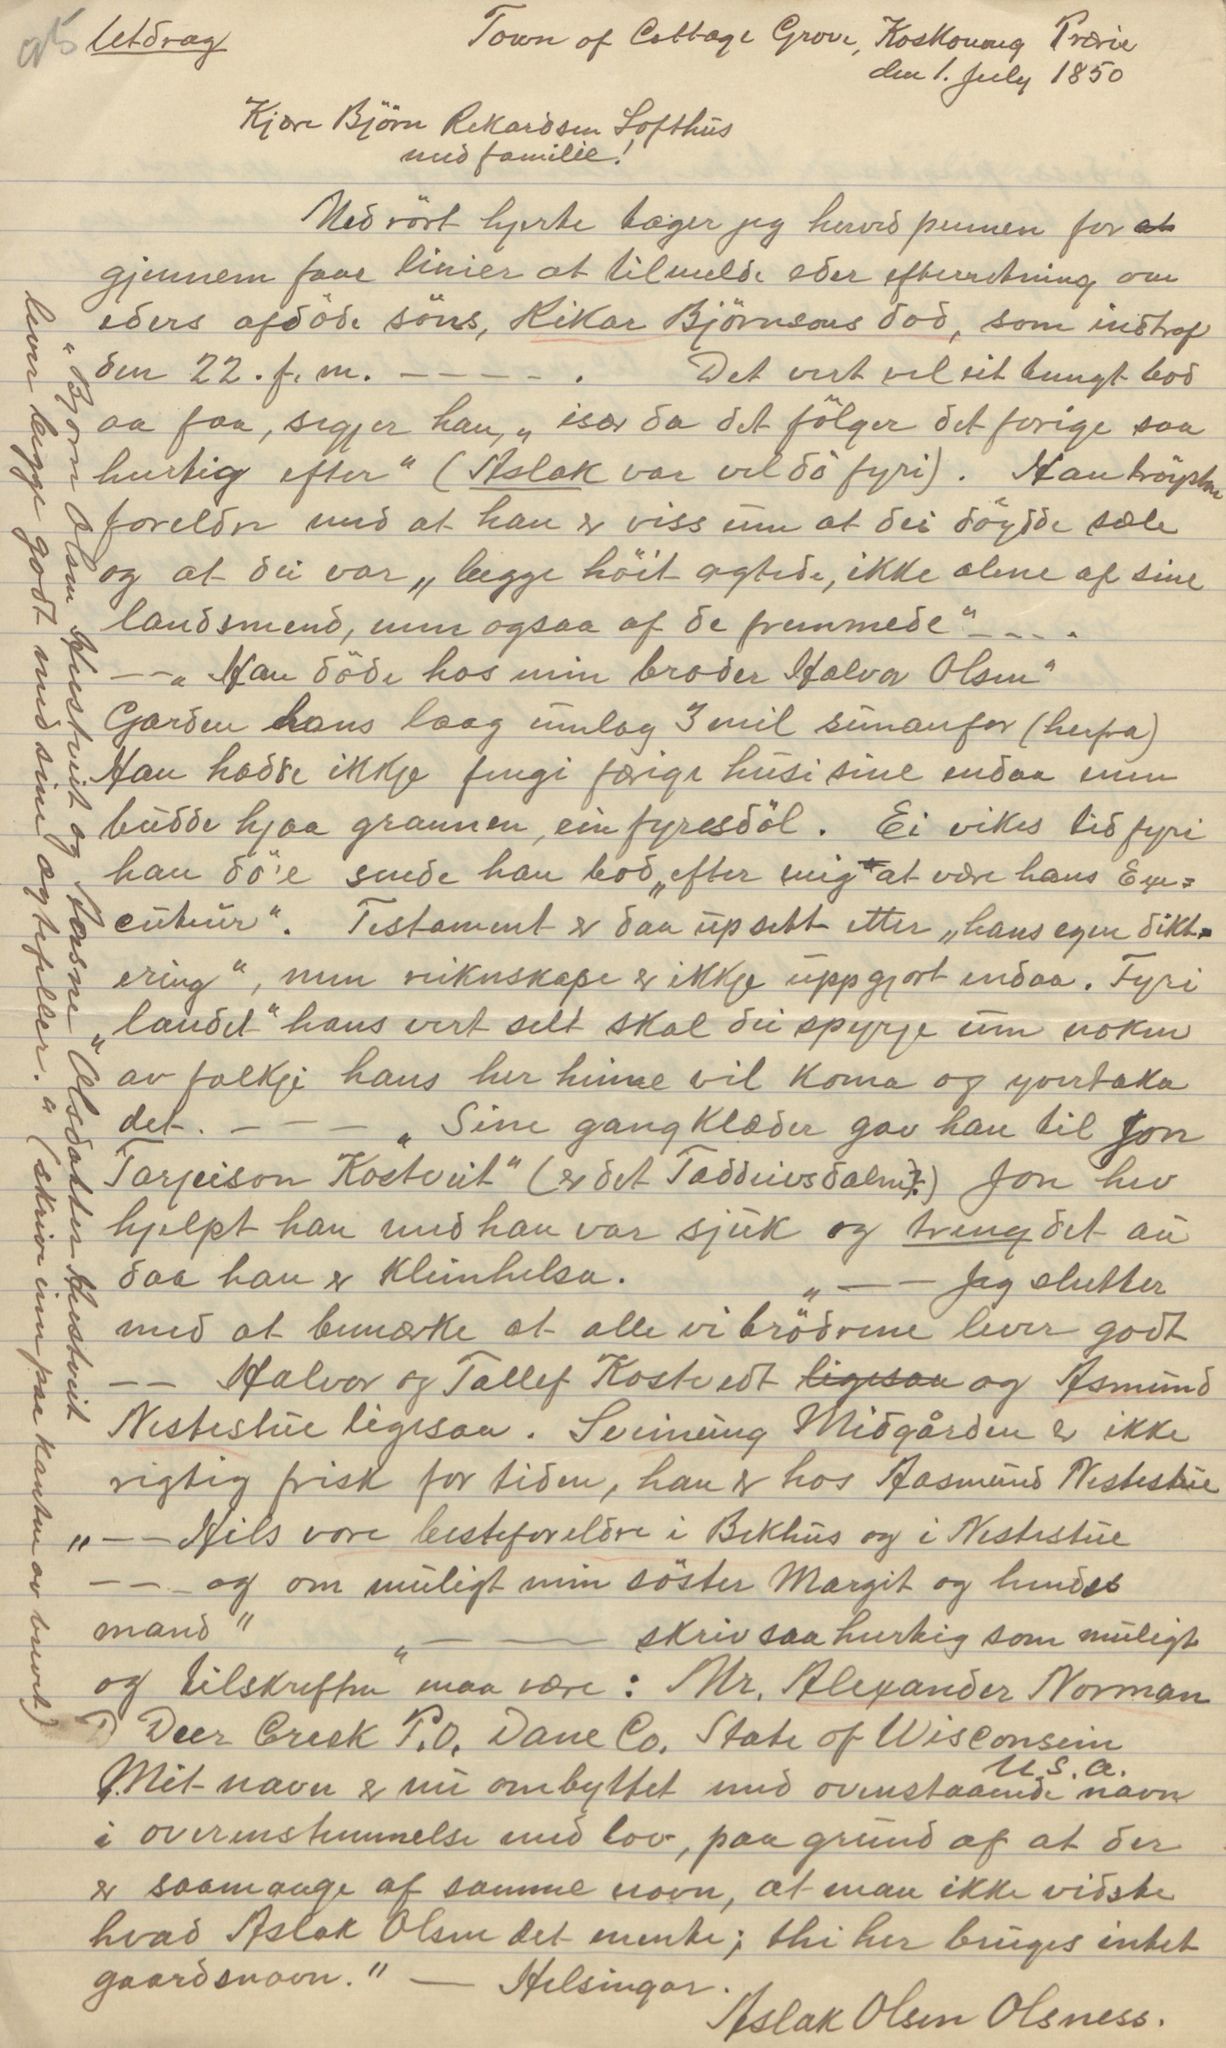 Utdrag
Town of Cottage Grove, Koskonong Prærie
den 1. July 1850
Kjære Björn Rekardsen Lofthus
med familie!
Med rört hjerte tæger jeg herved pennen for at
gjennem faae linier at tilmelde eder efterretning om
eders afdöde söns, Rikar Björnsons död, som indtraf
den 22. f. m. - - - - - . Det vert vel eit tungt bod
aa faa, segjer han, „ især da det fölger det forige saa
hurtig efter“ (Aslak var vel dö fyri). Han tröystar
foreldri med at han er viss um at dei döydde sæle
og at dei var „begge höit agtede, ikke alene af sine
landsmend, men ogsaa af de fremmede“ - - - .
- - „ Han döde hos min broder Halvor Olsen“
Garden hans laag umlag 3 mil sunanfor (herfra)
Han hadde ikkje fengi færige husi sine endaa men
budde hjaa grannen, ein fyresdöl. Ei vikes tid fyri
han dö'e sende han bod „efter mig at være hans Exe=
cuteur“. Testament er daa upsett etter „hans egen dikt=
ering“, men reiknskape er ikkje uppgjort endaa. Fyri
„landet“ hans vert selt skal dei spyrje um noken
av folkje hans her heime vil koma og yvertaka
det. - - - „ Sine gangklæder gav han til Jon
Tarjeison Kostveit“ (er det Taddeivsdalen?) Jon hev
hjelpt han med han var sjuk og treng det au
daa han er kleinhelsa. „ - - Jeg slutter
med at bemærke at alle vi brödrene lever godt
- - Halvor og Tallef Kostvedt ligesaa og Asmund
Nestestue ligesaa. Sveinung Midgården er ikke
rigtig frisk for tiden, han er hos Aasmund Nestestue
„ - - Hils vore besteforeldre i Bekhus og i Nestestue
- - - og om muligt min söster Margit og hendes
mand“ „ - - skriv saa hurtig som muligt
og tilskriften“ maa være: Mr. Alexander Norman
D Deer Creek P.O. Dane Co. State of Wisconsin
U.S.A.
„Mit navn er nu ombyttet med ovenstaaende navn
i overenstemmelse med lov, paa grund af at der
er saamange af samme navn, at man ikke vidste
hvad Aslak Olsen det mente; thi her bruges intet
gaardsnavn.“ - Helsingar.
Aslak Olsen Olsness.
„Bjorn Olsen Hustveit og Aasne“ Olsdatter Hustveit
lever begge godt med sine ægtefeller.“ (skrive inn paa kanten av brevet)